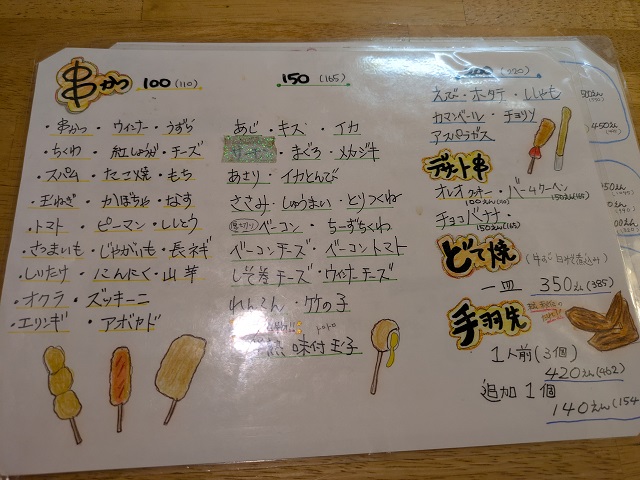 串かつ 100(110)
・串かつ ・ウィンナー ・うずら
・ちくわ ・紅しょうが ・チーズ
・スパム ・たこ焼 ・もち
・玉ねぎ ・かぼちゃ ・なす
・トマト ・ピーマン ・ししとう
・さつまいも ・じゃがいも ・長ネギ
・しいたけ ・にんにく ・山芋
・オクラ ・ズッキーニ
・エリンギ ・アボカド
150(165)
あじ・キス・イカ
・まぐろ・メカジキ
あさり・イカとんび
ささみ・しゅうまい・とりつくね
ベーコン・ちーずちくわ
ベーコンチーズ・ベーコントマト
しそ巻チーズ・ウィンナーチーズ
れんこん・竹の子
味付玉子
(220)
えび・ホタテ・ししゃも
カマンベール・チョリソ
アスパラガス
デザート串
オレオクッキー・バームクーヘン
100えん(110) 150えん(165)
チョコバナナ・
150えん(165)
どて焼
一皿 350えん(385)
手羽先
1人前(3個)
420えん(462)
追加1個
140えん(154
450えん